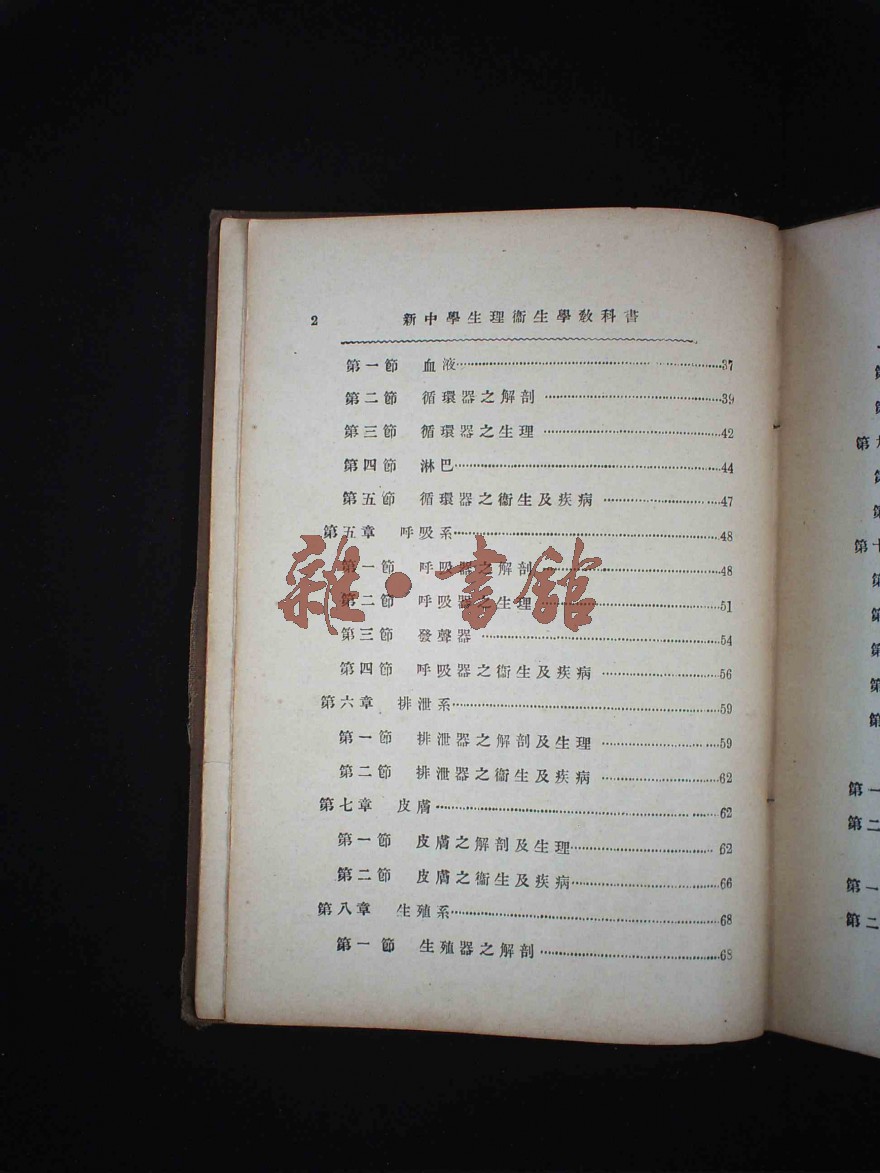 2 新中學生理衞生學教科書
第一節 血液……37
第二節 循環器之解剖……39
第三節 循環器之生理……42
第四節 淋巴……44
第五節 循環器之衞生及疾病……47
第五章 呼吸系……48
第一節 呼吸器之解剖……48
第二節 呼吸器之生理……51
第三節 發聲器……54
第四節 呼吸器之衞生及疾病……56
第六章 排泄系……59
第一節 排泄器之解剖及生理……59
第二節 排泄器之衞生及疾病……62
第七章 皮膚……62
第一節 皮膚之解剖及生理……62
第二節 皮膚之衞生及疾病……66
第八章 生殖系……68
第一節 生殖器之解剖……68
雜·書館
第
第
第
第
第十
第
第
第
第
第
第一
第二
第一
第二